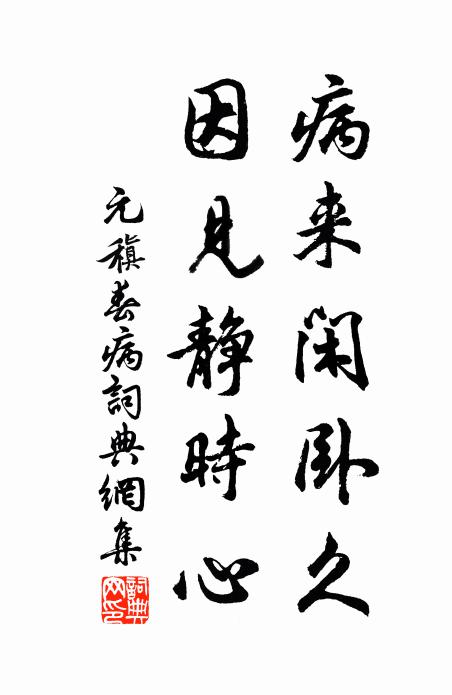 病来閑卧久
因見静時心
元稹春病詞典網集
詞典网印